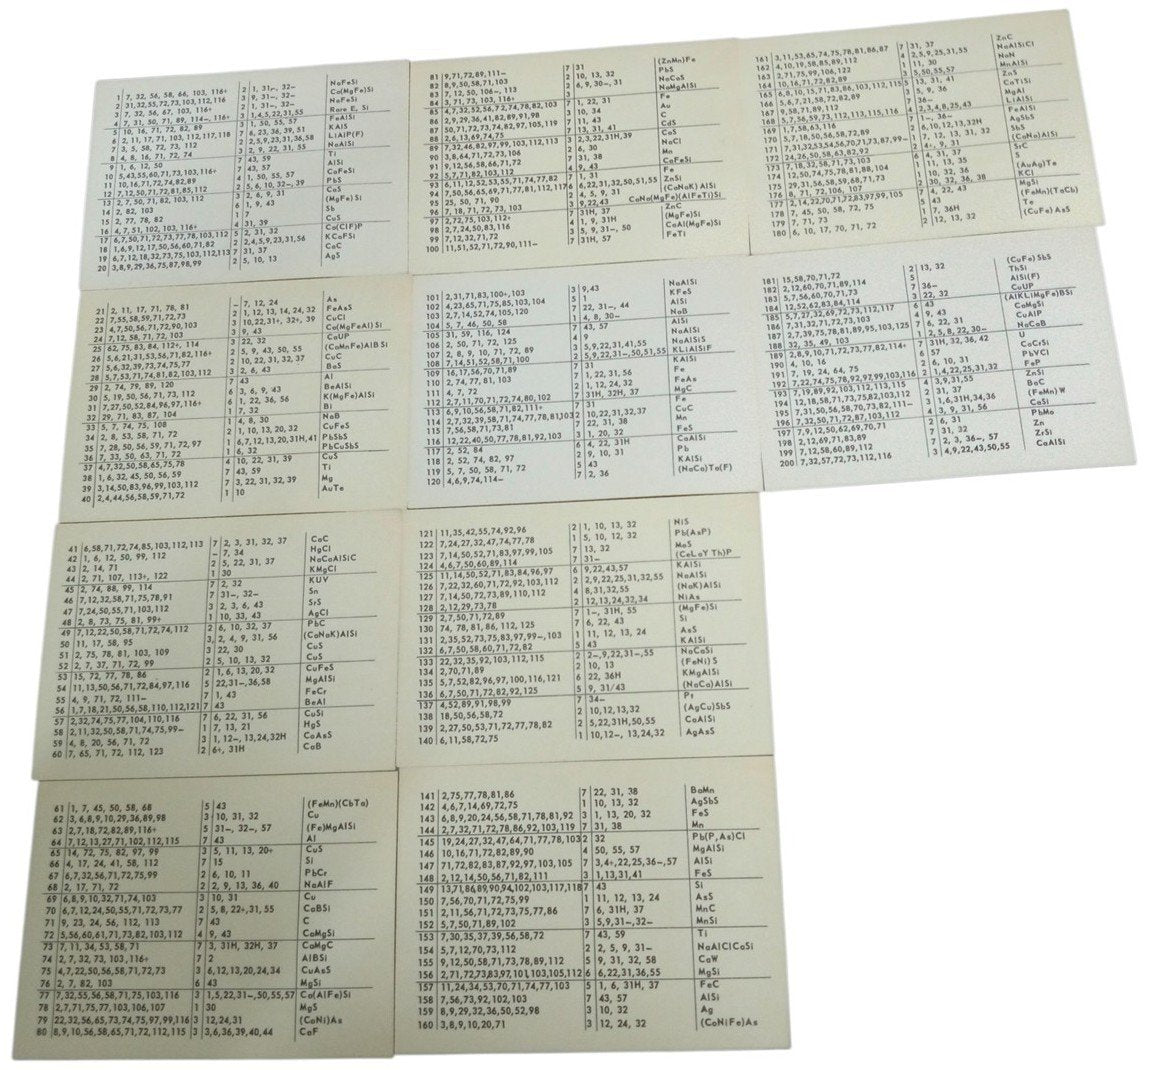 1 7, 32, 56, 58, 66, 103, 116+ 2 1, 31-, 32- NaFeSi
2 31,32,55,72,73,103,112,116 3 9, 31-, 32- Ca(MgFe)Si
3 7, 32, 56, 67, 103, 116+ 2 1, 31-, 32- NaFeSi
4 7, 31, 50, 71, 89, 114-, 116- 3 1,4,5,22,31,55 Rare E, Si
5 10, 16, 71, 72, 82, 89 3 1, 50, 55, 57 FeAlSi
6 2, 11, 17, 71, 103, 112, 117,118 7 6, 23, 36, 39, 51 KAlS
7 3, 5, 58, 72, 73, 112 2 2,5,9,23,31,36,58 LiAlP(F)
8 4, 8, 16, 71, 72, 74 3 2, 9, 22, 31, 55 NaAlSi
9 1, 6, 12, 50 7 43, 59 Ti
10 5,43,55,60,71,73,103,116+ 7 43, 57 AlSi
11 10,16,71,72,74,82,89 4 1, 50, 55, 57 CaFeSi
12 7,12,50,71,72,81,85,112 2 5, 6, 10, 32-, 39 PbS
13 2,7,50,71,82,103,112 3 2, 6, 9, 31 CaS
14 2, 82, 103 6 1, 9, 43 (MgFe) Si
15 2, 77, 78, 82 1 7 Sb
16 4,7,51,102,103,116+ 4 31, 39 CuS
17 6,7,50,71,72,73,77,78,103,112 5 2, 31, 32 Ca(ClF)P
18 1,6,9,12,17,50,56,60,71,82 2 2,4,5,9,23,31,56 KCaFSi
19 6,7,12,18,32,73,75,103,112,113 7 31, 37 CaC
20 3,8,9,29,36,75,87,98,99 2 5, 10, 13 AgS
81 9,71,72,89,111- 7 31 (ZnMn)Fe
82 8,9,50,58,71,103 2 10, 13, 32 PbS
83 7, 12, 50, 106-, 113 2 6, 9, 30-, 31 NaCaS
84 3, 71, 73, 103, 116+ 3 NaMgAlSi
85 4,7,32,52,56,72,74,78,82,103 7 1, 22, 31 Fe
86 2,9,29,36,41,82,89,91,98 3 10, 34 Au
87 50,71,72,73,74,82,97,105,119 7 11, 43 C
88 2,6,13,69,74,75 7 13, 31, 41 CdS
89 7,32,46,82,97,99,103,112,113 2 3,22, 31H,39 CaS
90 3,8,64,71,72,73,106 2 6, 30 NaCl
91 9,12,56,58,66,71,72 7 31, 38 Mn
92 5,7,71,82,103,112 4 9, 43 CaFeSi
93 6,11,12,52,53,55,71,74,77,82 7 1, 31 Fe
94 7,50,56,65,69,71,77,81,112,117 6 6,22,31,32,50,51,55 ZnSi
95 25, 50, 71, 90 4 5, 9, 31 (CaNaK) AlSi
96 7, 18, 71, 72, 73, 103 3 9,22,43 CaNa(MgFe)(AlFeTi)Si
97 2,72,75,103,112+ 7 31H, 37 ZnC
98 2,7,24,50,83,116 4 1, 9, 31H (MgFe)Si
99 7,12,32,71,72 3 5, 9, 31-, 50 CaAl(MgFe)Si
100 11,51,52,71,72,90,111- 7 31H, 57 FeTi
161 3,11,53,65,74,75,78,81,86,87 7 31, 37 ZnC
162 4,10,19,58,85,89,112 4 2,5,9,25,31,55 NaAlSiCl
163 2,71,75,99,106,122 1 11, 30 NaN
164 10,16,71,72,82,89 3 5,50,55,57 MnAlSi
165 6,8,10,15,71,83,86,103,112,115 7 13, 31, 41 ZnS
166 5,6,7,21,58,72,82,89 3 5, 9, 36 CaTiSi
167 9,58,71,89,112 7 36- MgAl
168 5,7,56,59,73,112,113,115,116 4 2,3,4,8,25,43 LiAlSi
169 1,7,58,63,116 7 1-, 36- FeAlSi
170 5,7,18,50,56,58,72,89 2 6,10,12,13,32H AgSbS
171 7,31,32,53,54,56,70,71,73,87,99- 1 7, 12, 13, 31, 32 SbS
172 24,26,50,58,63,82,92 2 4+, 9, 31 (CaNa)AlSi
173 7,18,32,58,71,73,103 6 4, 31, 37 SrC
174 12,50,74,75,78,81,88,104 1 11, 13, 35 S
175 29,31,56,58,59,68,71,73 1 10, 16, 32 (AuAg)Te
176 8, 71, 72, 106, 107 2 30, 32, 36, 38 KCl
177 2,14,22,70,71,72,83,97,99,105 7 4, 22, 43 MgSi
178 7, 45, 50, 58, 72, 75 5 43 (FeMn)(TaCb)
179 7, 71, 73 1 7, 36H Te
180 6, 10, 17, 70, 71, 72 2 12, 13, 32 (CuFe) AsS
21 2, 11, 17, 71, 78, 81 - 7, 12, 24 As
22 7,55,58,59,71,72,73 2 1, 12, 13, 14, 24, 32 FeAsS
23 4,7,50,56,71,72,90,103 3 10,22,31+, 32+, 39 CuCl
24 7,12,58,71,72,103 3 9, 43 Ca(MgFeAl)Si
25 62, 75, 83, 84, 112+, 114 3 22, 32 CaUP
26 5,6,21,31,53,56,71,82,116+ 2 5, 9, 43, 50, 55 (CaMnFe)AlBSi
27 5,6,32,39,73,74,75,77 2 10, 22, 31, 32, 37 CuC
28 5,7,53,71,74,81,82,103,112 3 2, 6, 43 BaS
29 2, 74, 79, 89, 120 7 43 Al
30 5, 19, 50, 56, 71, 73, 112 3 3, 6, 9, 43 BeAlSi
31 7,27,50,52,84,96,97,116+ 1 1, 22, 36, 56 K(MgFe)AlSi
32 29, 71, 83, 87, 104 1 7, 32 Bi
33 5, 7, 74, 75, 108 4 8, 30 NaB
34 2, 8, 53, 58, 71, 72 2 1, 10, 13, 20, 32 CuFeS
35 7, 28, 50, 56, 59, 71, 72, 97 1 6,7,12,13,20,31H,41 PbSbS
36 7, 33, 50, 63, 71, 72 1 6, 32 PbCuSbS
37 4,7,32,50,58,65,75,78 4 10, 22, 31, 39 CuS
38 1, 6, 32, 45, 50, 56, 59 7 43, 59 Ti
39 3,14,50,83,96,99,103,112 7 3, 22, 31, 32, 39 Mg
40 2,4,44,56,58,59,71,72 1 10 AuTe
101 2,31,71,83,100+,103 3 9,43 NaAlSi
102 4,23,65,71,75,85,103,104 5 1 KFeS
103 2,7,14,52,74,105,120 7 22, 31-, 44 AlSi
104 5, 7, 46, 50, 58 4 8, 30- NaB
105 31, 59, 116, 124 7 43, 57 AlSi
106 2, 50, 71, 72, 125 4 9 NaAlSi
107 2, 8, 9, 10, 71, 72, 89 3 5,9,22,31,41,55 NaAlSiS
108 7,14,51,52,58,71,100 2 5,9,22,31-,50,51,55 KLiAlSiF
109 16,17,56,70,71,89 7 31 KAlSi
110 2, 74, 77, 81, 103 7 1, 22, 31, 56 Fe
111 4, 7, 72 2 1, 12, 24, 32 FeAs
112 2,7,11,70,71,72,74,80,102 7 31H, 32H, 37 MgC
113 6,9,10,56,58,71,82,111+ 7 31 Fe
114 2,7,32,39,58,71,74,77,78,81,103 2 10,22,31,32,37 CuC
115 7,56,58,71,73,81 7 22, 31, 38 Mn
116 12,22,40,50,77,78,81,92,103 3 1, 20, 32 FeS
117 2, 52, 84 6 4, 22, 31H CaAlSi
118 2, 52, 74, 82, 97 2 9, 10, 31 Pb
119 5, 7, 50, 58, 71, 72 5 43 KAlSi
120 4,6,9,74,114- 7 2, 36 (NaCa)Ta(F)
181 15,58,70,71,72 2 13, 32 (CuFe)SbS
182 2,12,60,70,71,89,114 5 ThSi
183 5,7,56,60,70,71,73 7 36- AlSi(F)
184 12,52,62,83,84,114 3 22, 32 CuUP
185 5,7,27,32,69,72,73,112,117 6 43 (AlKLiMgFe)BSi
186 7,31,32,71,72,73,103 4 9, 43 CaMgSi
187 2,7,39,75,78,81,89,95,103,125 7 6, 22, 31 CuAlP
188 32, 35, 49, 103 1 2,5,8,22,30- NaCaB
189 2,8,9,10,71,72,73,77,82,114+ 7 31H, 32,36, 42 U
190 4, 10, 16 6 57 CaCrSi
191 7, 19, 24, 64, 75 2 6, 10, 31 PbVCl
192 7,22,74,75,78,92,97,99,103,116 2 1,4,22,25,31,32 FeP
193 7,19,89,92,103,112,113,115 4 3,9,31,55 ZnSi
194 12,18,58,71,73,75,82,103,112 2 31, 37 BaC
195 7,31,50,56,58,70,73,82,111- 3 1,6,31H,34,36 (FeMn)W
196 7,32,50,71,72,87,103,112 4 3, 9, 31, 56 CaSi
197 7,9,12,50,62,69,70,71 2 6, 31 PbMo
198 2,12,69,71,83,89 7 31, 32 Zn
199 7,12,58,60,89,112 7 2, 3, 36-, 57 ZrSi
200 7,32,57,72,73,112,116 3 4,9,22,43,50,55 CaAlSi
41 6,58,71,72,74,85,103,112,113 7 2, 3, 31, 32, 37 CaC
42 1, 6, 12, 50, 99, 112 - 7, 34 HgCl
43 2, 14, 71 2 5, 22, 31, 37 NaCaAlSiC
44 2, 71, 107, 113+, 122 1 30 KMgCl
45 2, 74, 88, 99, 114 7 2, 32 KUV
46 7,12,32,58,71,75,78,91 7 31-, 32- Sn
47 7,24,50,55,71,103,112 3 2, 3, 6, 43 SrS
48 2, 8, 73, 75, 81, 99+ 1 10, 33, 43 AgCl
49 7,12,22,50,58,71,72,74,112 2 6, 10, 32, 37 PbC
50 11, 17, 58, 95 3 2, 4, 9, 31, 56 (CaNaK)AlSi
51 2, 75, 78, 81, 103, 109 3 22, 30 CuS
52 2, 7, 37, 71, 72, 99 2 5, 10, 13, 32 CuS
53 15, 72, 77, 78, 86 2 1,6,13,20,32 CuFeS
54 11,13,50,56,71,72,84,97,116 5 22,31-,36,58 MgAlSi
55 4, 9, 71, 72, 111- 7 1, 43 FeCr
56 1,7,18,21,50,56,58,110,112,121 7 43 BeAl
57 2,32,74,75,77,104,110,116 7 6, 22, 31, 56 CuSi
58 2,11,32,50,58,71,74,75,99- 1 7, 13, 21 HgS
59 4, 8, 20, 56, 71, 72 3 1, 12-, 13,24,32H CoAsS
60 7, 65, 71, 72, 112, 123 2 6+, 31H CaB
121 11,35,42,55,74,92,96 2 1, 10, 13, 32 NiS
122 7,24,27,32,47,74,77,78 1 5, 10, 12, 32 Pb(AsP)
123 7,14,50,52,71,83,97,99,105 7 13, 32 MoS
124 4,6,7,50,60,89,114 7 31 (CeLaY Th)P
125 11,14,50,52,71,83,84,96,97 6 9,22,43,57 KAlSi
126 7,22,32,60,71,72,92,103,112 2 2,9,22,25,31,32,55 NaAlSi
127 7,14,50,72,73,89,110,112 4 8,31,32,55 (NaK)AlSi
128 2,12,29,73,78 2 12,13,24,32,34 NiAs
129 2,7,50,71,72,89 7 1-, 31H, 55 (MgFe)Si
130 74, 78, 81, 86, 112, 125 7 6, 22, 43 Si
131 2,35,52,73,75,83,97,99-,103 1 11, 12, 13, 24 AsS
132 6,7,50,58,60,71,72,82 5 43 KAlSi
133 22,32,35,92,103,112,115 2 2-,9,22,31-,55 NaCaSi
134 2,70,71,89 2 10, 13 (FeNi) S
135 5,7,52,82,96,97,100,116,121 6 22, 36H KMgAlSi
136 6,7,50,71,72,82,92,125 5 9, 31/43 (NaCa)AlSi
137 4,52,89,91,98,99 7 34- Pt
138 18,50,56,58,72 2 10,12,13,32 (AgCu)SbS
139 2,27,50,53,71,72,77,78,82 2 5,22,31H,50,55 CaAlSi
140 6,11,58,72,75 1 10,12-, 13,24,32 AgAsS
61 1, 7, 45, 50, 58, 68 5 43 (FeMn)(CbTa)
62 3,6,8,9,10,29,36,89,98 3 10, 31, 32 Cu
63 2,7,18,72,82,89,116+ 5 31-, 32-, 57 (Fe)MgAlSi
64 7,12,13,27,71,102,112,115 7 43 Al
65 14, 72, 75, 82, 97, 99 3 5, 11, 13, 20+ CuS
66 4, 17, 24, 41, 58, 112 7 15 Si
67 6,7,32,56,71,72,75,99 2 6, 10, 11 PbCr
68 2, 17, 71, 72 2 2, 9, 13, 36, 40 NaAlF
69 6,8,9,10,32,71,74,103 3 10, 31 Cu
70 6,7,12,24,50,55,71,72,73,77 2 5, 8, 22+,31,55 CaBSi
71 9, 23, 24, 56, 112, 113 7 43 C
72 5,56,60,61,71,73,82,103,112 4 9, 43 CaMgSi
73 7, 11, 34, 53, 58, 71 7 3, 31H, 32H, 37 CaMgC
74 2, 7, 32, 73, 103, 116+ 7 2 AlBSi
75 4,7,22,50,56,58,71,72,73 3 6,12,13,20,24,34 CuAsS
76 2, 7, 82, 103 6 43 MgSi
77 7,32,55,56,58,71,75,103,116 3 1,5,22,31-,50,55,57 Ca(AlFe)Si
78 2,7,71,75,77,103,106,107 1 30 MgS
79 22,32,56,65,73,74,75,97,99,116 3 12,24,31 (CoNi)As
80 8,9,10,56,58,65,71,72,112,115 3 3,6,36,39,40,44 CaF
141 2,75,77,78,81,86 7 22, 31, 38 BaMn
142 4,6,7,14,69,72,75 1 10, 13, 32 AgSbS
143 6,8,9,20,24,56,58,71,78,81,92 3 1, 13, 20, 32 FeS
144 2,7,32,71,72,78,86,92,103,119 7 31, 38 Mn
145 19,24,27,32,47,64,71,77,78,103 2 32 Pb(P,As)Cl
146 10,16,71,72,82,89,90 4 50, 55, 57 MgAlSi
147 71,72,82,83,87,92,97,103,105 7 3,4+,22,25,36-,57 AlSi
148 2,12,14,50,56,71,82,111 3 1,13,31,41 FeS
149 13,71,86,89,90,94,102,103,117,118 7 43 Si
150 7,56,70,71,72,75,99 1 11, 12, 13, 24 AsS
151 2,11,56,71,72,73,75,77,86 7 6, 31H, 37 MnC
152 5,7,50,71,89,102 3 5,9,31-,32- MnSi
153 7,30,35,37,39,56,58,72 7 43, 59 Ti
154 5,7,12,70,73,112 2 2, 5, 9, 31- NaAlClCaSi
155 9,12,50,58,71,73,78,89,112 5 9, 31, 32, 58 CaW
156 2,71,72,73,83,97,101,103,105,112 6 6,22,31,36,55 MgSi
157 11,24,34,53,70,71,74,77,103 5 1, 6, 31H, 37 FeC
158 7,56,73,92,102,103 7 43, 57 AlSi
159 8,9,29,32,36,50,52,98 3 10, 32 Ag
160 3,8,9,10,20,71 3 12, 24, 32 (CoNiFe)As